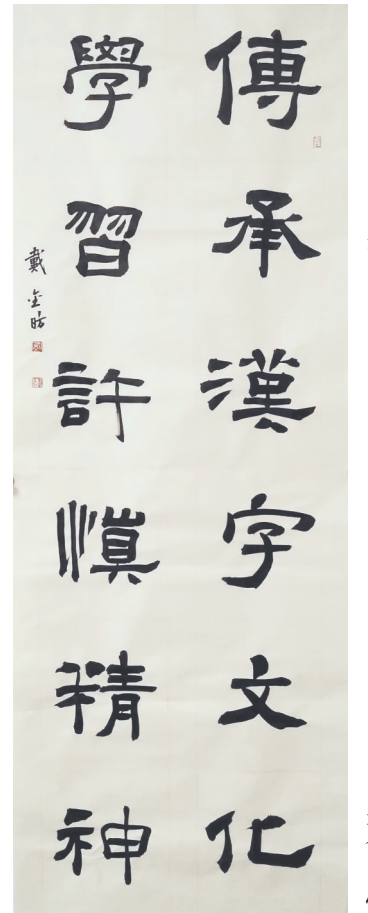 傳承漢字文化
學習許慎精神
戴金昉